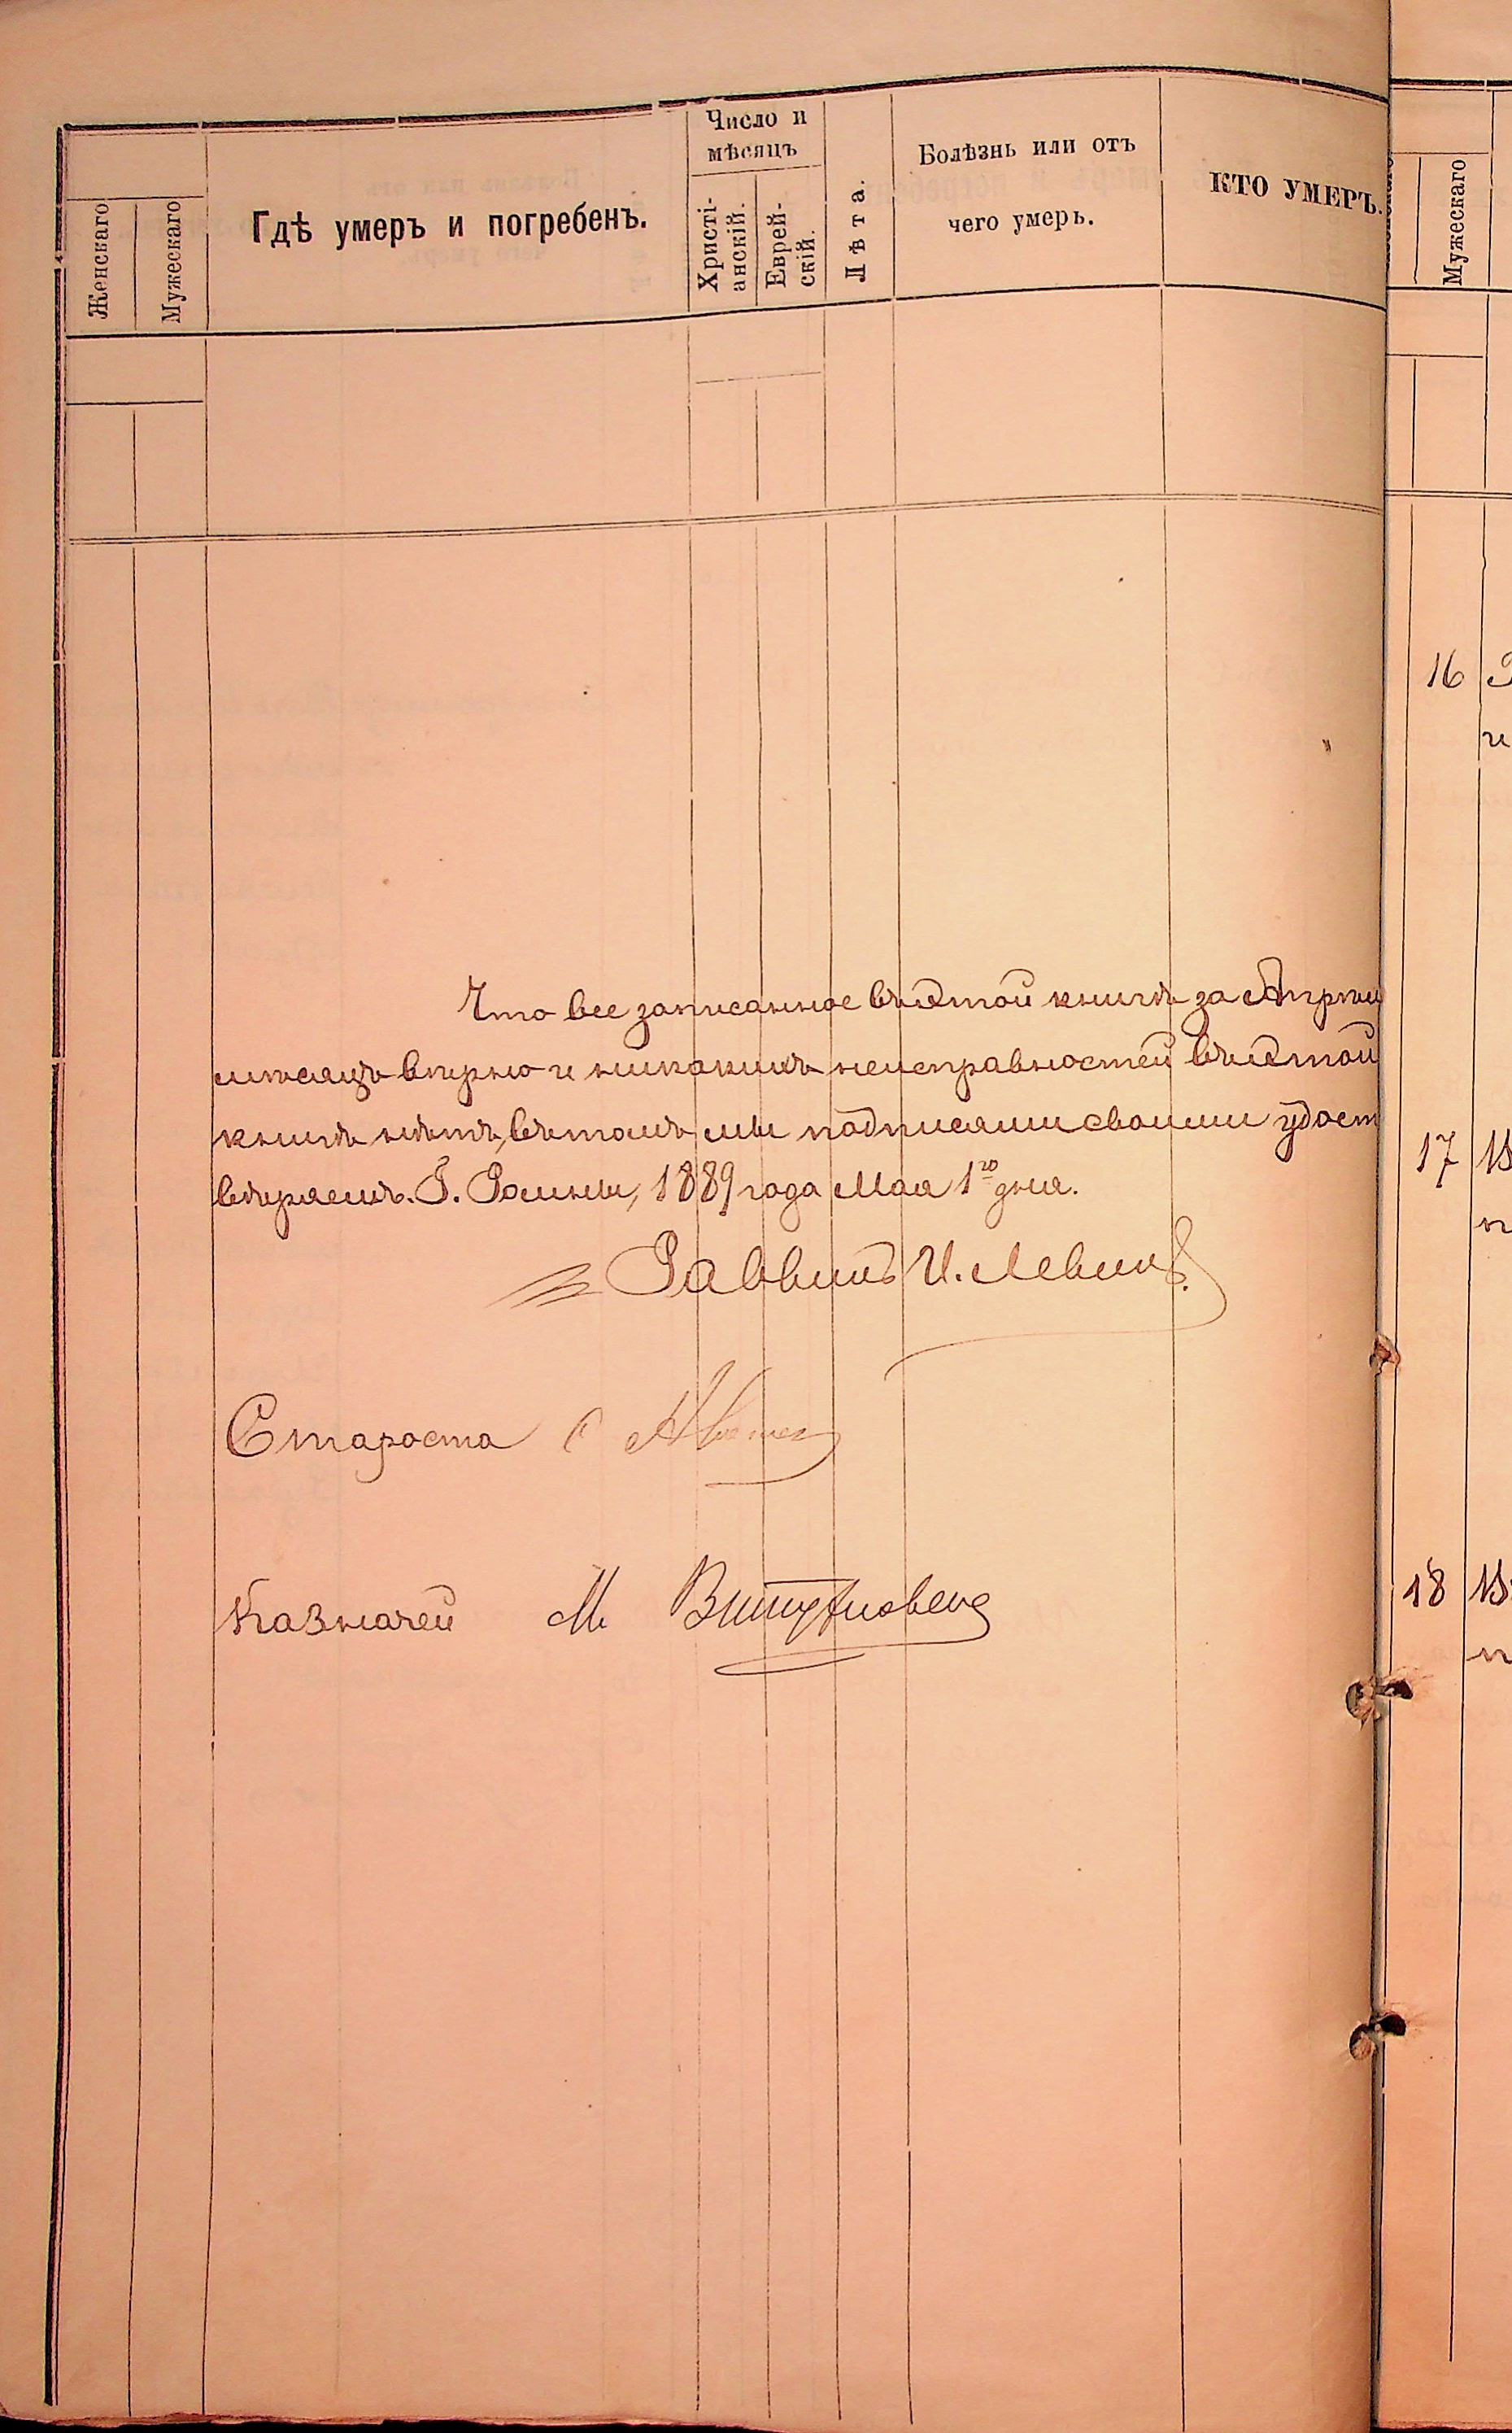 Женскаго
Мужескаго
Гдѣ умеръ и погребенъ.
Число и
мѣсяцъ
Христі-
анскій.
Еврей-
скій.
Лѣта.
Болѣзнь или отъ
чего умеръ.
КТО УМЕРЪ.
Мужескаго
16
17
18
Что все записанное въ этой книгѣ за Апрѣл
мѣсяцъ вѣрно и никакихъ неисправностей въ этой
книгѣ нѣтъ, въ томъ мы подписями своими удост
вѣряемъ. Г. Ромны, 1889 года Мая 1го дня.
Раввинъ И. Левинъ.
Староста
Казначей М